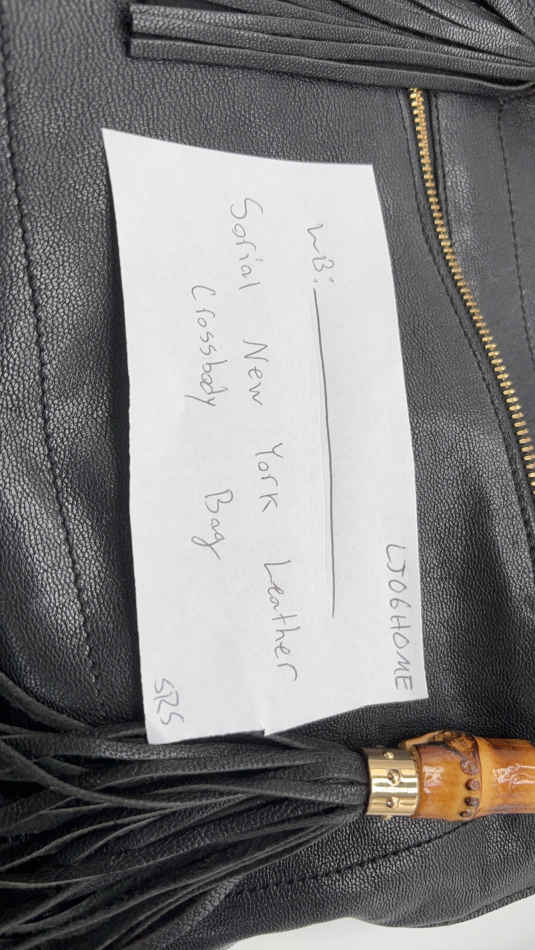 LJ06HOME
WB:
Sorial New York Leather
Crossbody Bag